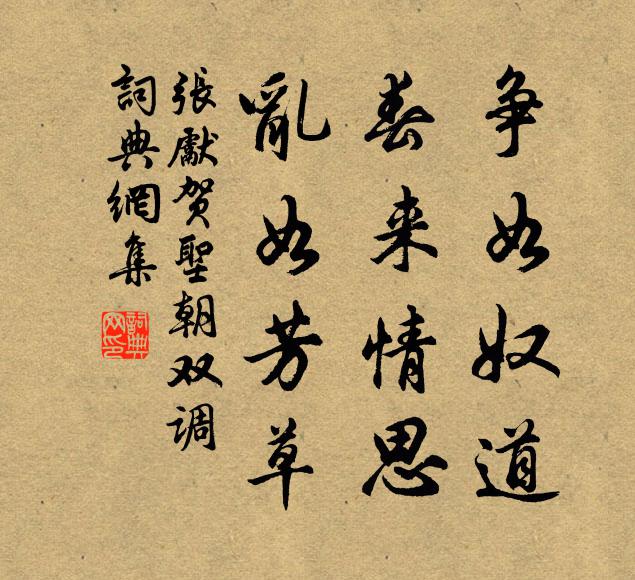 争如奴道
春来情思
亂如芳草
張獻贺聖朝双调
詞典網集
詞典网印